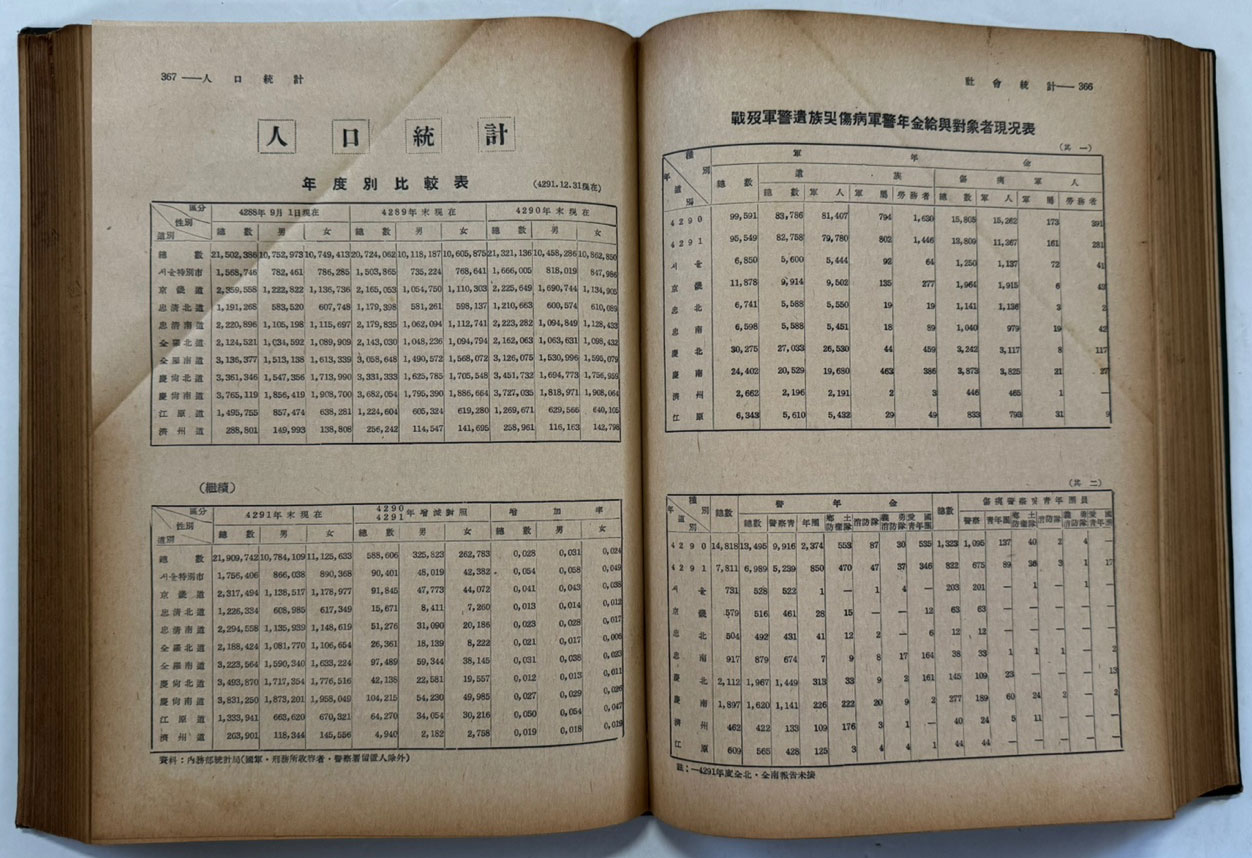 367 ——人口統計
人口統計
年度別比較表
(4291.12.31現在)
區分 性別 道別 4288年9月1日現在 4289年末現在 4290年末現在
總數 男 女 總數 男 女 總數 男 女
總數 21,502,386 10,752,973 10,749,413 20,724,062 10,118,187 10,605,875 21,321,136 10,458,286 10,862,850
서울特別市 1,568,746 782,461 786,285 1,503,865 735,224 768,641 1,666,005 818,019 847,986
京畿道 2,359,558 1,222,822 1,136,736 2,165,053 1,054,750 1,110,303 2,225,649 1,690,744 1,134,905
忠清北道 1,191,268 583,520 607,748 1,179,398 581,261 598,137 1,210,663 600,574 610,089
忠清南道 2,220,896 1,105,198 1,115,697 2,179,835 1,062,094 1,112,741 2,223,282 1,094,849 1,128,433
全羅北道 2,124,521 1,034,592 1,089,909 2,143,030 1,048,236 1,094,794 2,162,063 1,063,631 1,098,432
全羅南道 3,136,377 1,513,138 1,613,339 3,058,648 1,490,572 1,568,072 3,126,075 1,530,996 1,595,079
慶尙北道 3,361,346 1,547,356 1,713,990 3,331,333 1,625,785 1,705,548 3,451,732 1,694,773 1,756,959
慶尙南道 3,765,119 1,856,419 1,908,700 3,682,054 1,795,390 1,886,664 3,727,035 1,818,971 1,908,064
江原道 1,495,755 857,474 638,281 1,224,604 605,324 619,280 1,269,671 629,566 640,105
濟州道 288,801 149,993 138,808 256,242 114,547 141,695 258,961 116,163 142,798
(繼續)
區分 性別 道別 4291年末現在 4290 4291年增減對照 增加率
總數 男 女 總數 男 女 總數 男 女
總數 21,909,742 10,784,109 11,125,633 588,606 325,823 262,783 0,028 0,031 0,024
서울特別市 1,756,406 866,038 890,368 90,401 48,019 42,382 0,054 0,058 0,049
京畿道 2,317,494 1,138,517 1,178,977 91,845 47,773 44,072 0,041 0,043 0,038
忠清北道 1,226,334 608,985 617,349 15,671 8,411 7,260 0,013 0,014 0,012
忠清南道 2,294,558 1,135,939 1,148,619 51,276 31,090 20,186 0,023 0,028 0,017
全羅北道 2,188,424 1,081,770 1,106,654 26,361 18,139 8,222 0,021 0,017 0,008
全羅南道 3,223,564 1,590,340 1,633,224 97,489 59,344 38,145 0,031 0,038 0,023
慶尙北道 3,493,870 1,717,354 1,776,516 42,138 22,581 19,557 0,012 0,013 0,011
慶尙南道 3,831,250 1,873,201 1,958,049 104,215 54,230 49,985 0,027 0,029 0,026
江原道 1,333,941 663,620 670,321 64,270 34,054 30,216 0,050 0,054 0,047
濟州道 263,901 118,344 145,556 4,940 2,182 2,758 0,019 0,018 0,019
資料：內務部統計局(國軍・刑務所收容者・警察署留置人除外)
社會統計——366
戰歿軍警遺族및傷病軍警年金給與對象者現況表
(其一)
種別 年道別 總數 軍年金
遺族 傷痍軍人
總數 軍人 軍屬 勞務者 總數 軍人 軍屬 勞務者
4290 99,591 83,786 81,407 794 1,630 15,805 15,262 173 395
4291 95,549 82,758 79,780 802 1,446 13,809 11,367 161 281
서울 6,850 5,600 5,444 92 64 1,250 1,137 72 41
京畿 11,878 9,914 9,502 135 277 1,964 1,915 6 43
忠北 6,741 5,588 5,550 19 19 1,141 1,136 3 2
忠南 6,598 5,588 5,451 18 89 1,040 979 19 42
慶北 30,275 27,033 26,530 44 459 3,242 3,117 8 117
慶南 24,402 20,529 19,630 463 386 3,873 3,825 21 27
濟州 2,662 2,196 2,191 2 3 446 465 1 —
江原 6,343 5,610 5,432 29 49 833 793 31 9
(其二)
種別 年道別 總數 警年金 總數 傷痍警察및靑年團員
總數 警察靑 年團 鄕土防衛隊 消防隊 義勇消防隊 愛國靑年團 警察 靑年團 鄕土防衛隊 消防隊 義勇消防隊 愛國靑年團
4290 14,818 13,495 9,916 2,374 553 87 30 535 1,323 1,095 137 40 2 4 —
4291 7,811 6,989 5,239 850 470 47 37 346 822 675 89 36 3 1 17
서울 731 528 522 1 — 1 4 — 203 201 — 1 — — —
京畿 579 516 461 28 15 — — 12 63 63 — — — — —
忠北 504 492 431 41 12 2 — 6 12 12 — — — — —
忠南 917 879 674 7 9 8 17 164 38 33 1 1 1 — 2
慶北 2,112 1,967 1,449 313 33 9 2 161 145 109 23 — — — 13
慶南 1,897 1,620 1,141 226 222 20 9 2 277 189 60 24 2 — 2
濟州 462 422 133 109 176 3 1 — 40 24 5 11 — — —
江原 609 565 428 125 3 4 4 1 44 44 — — — — —
註：—4291年度全北・全南報告未接